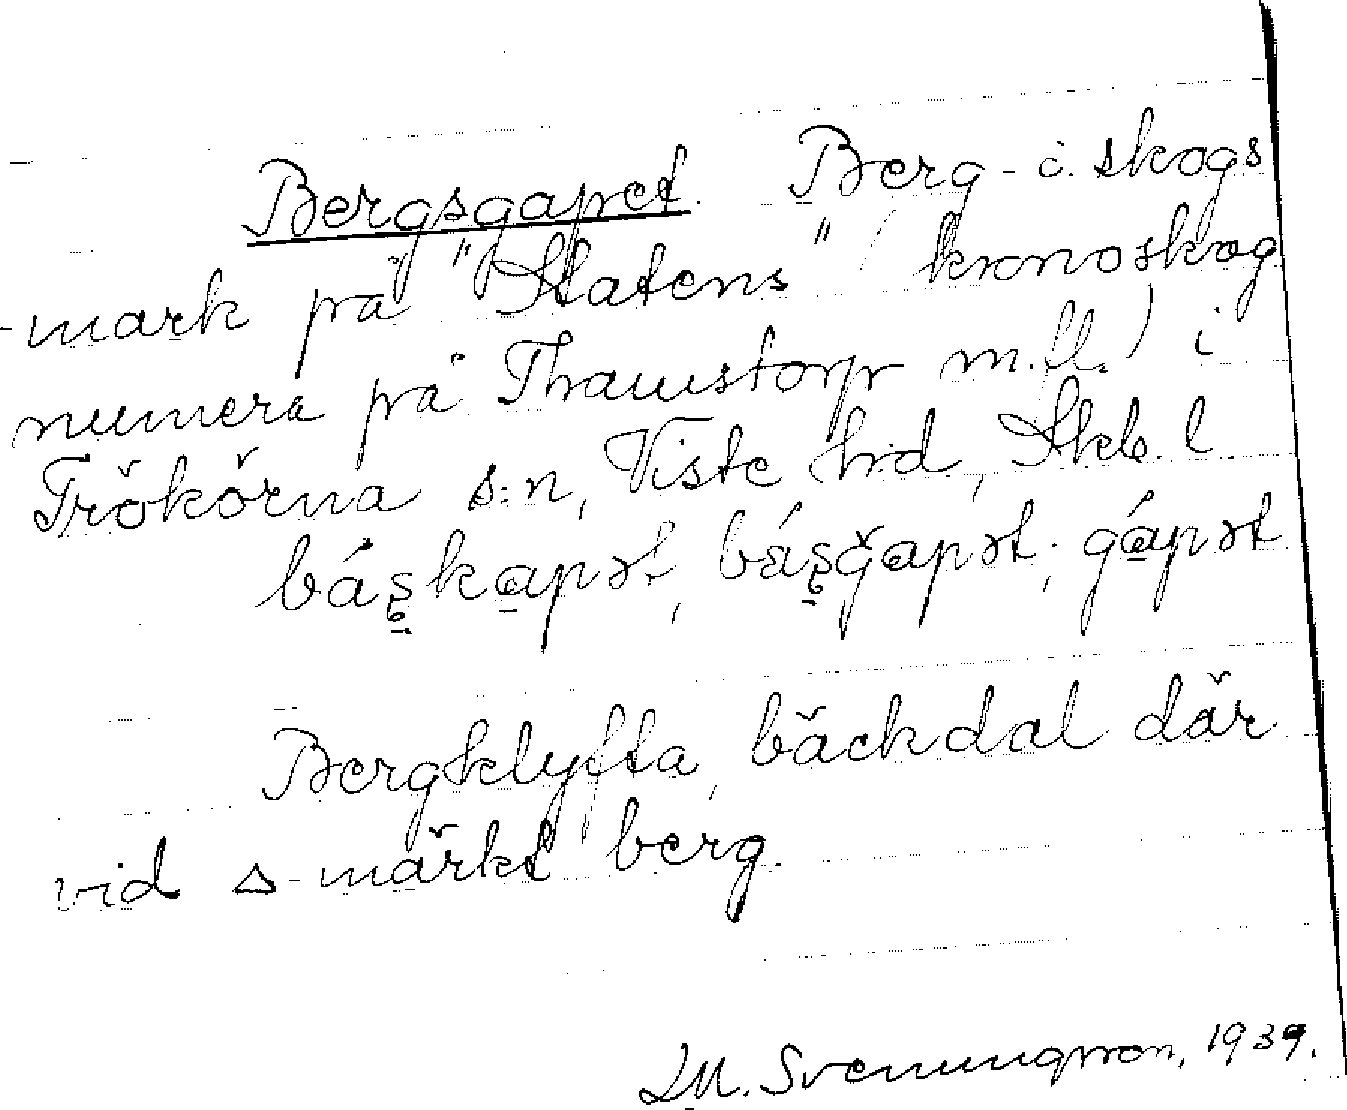 Bergsgapet. Berg- o. skogs
-mark på "Statens" (kronoskog
numera på Thamstorp m.fl.) i
Trökörna s:n, Viste hrd, Skb. l.
bá̱ʂkapət, báʂgapət; gápət
Bergklyfta, bäckdal där
vid △-märkt berg.
M. Svenungsson, 1939.